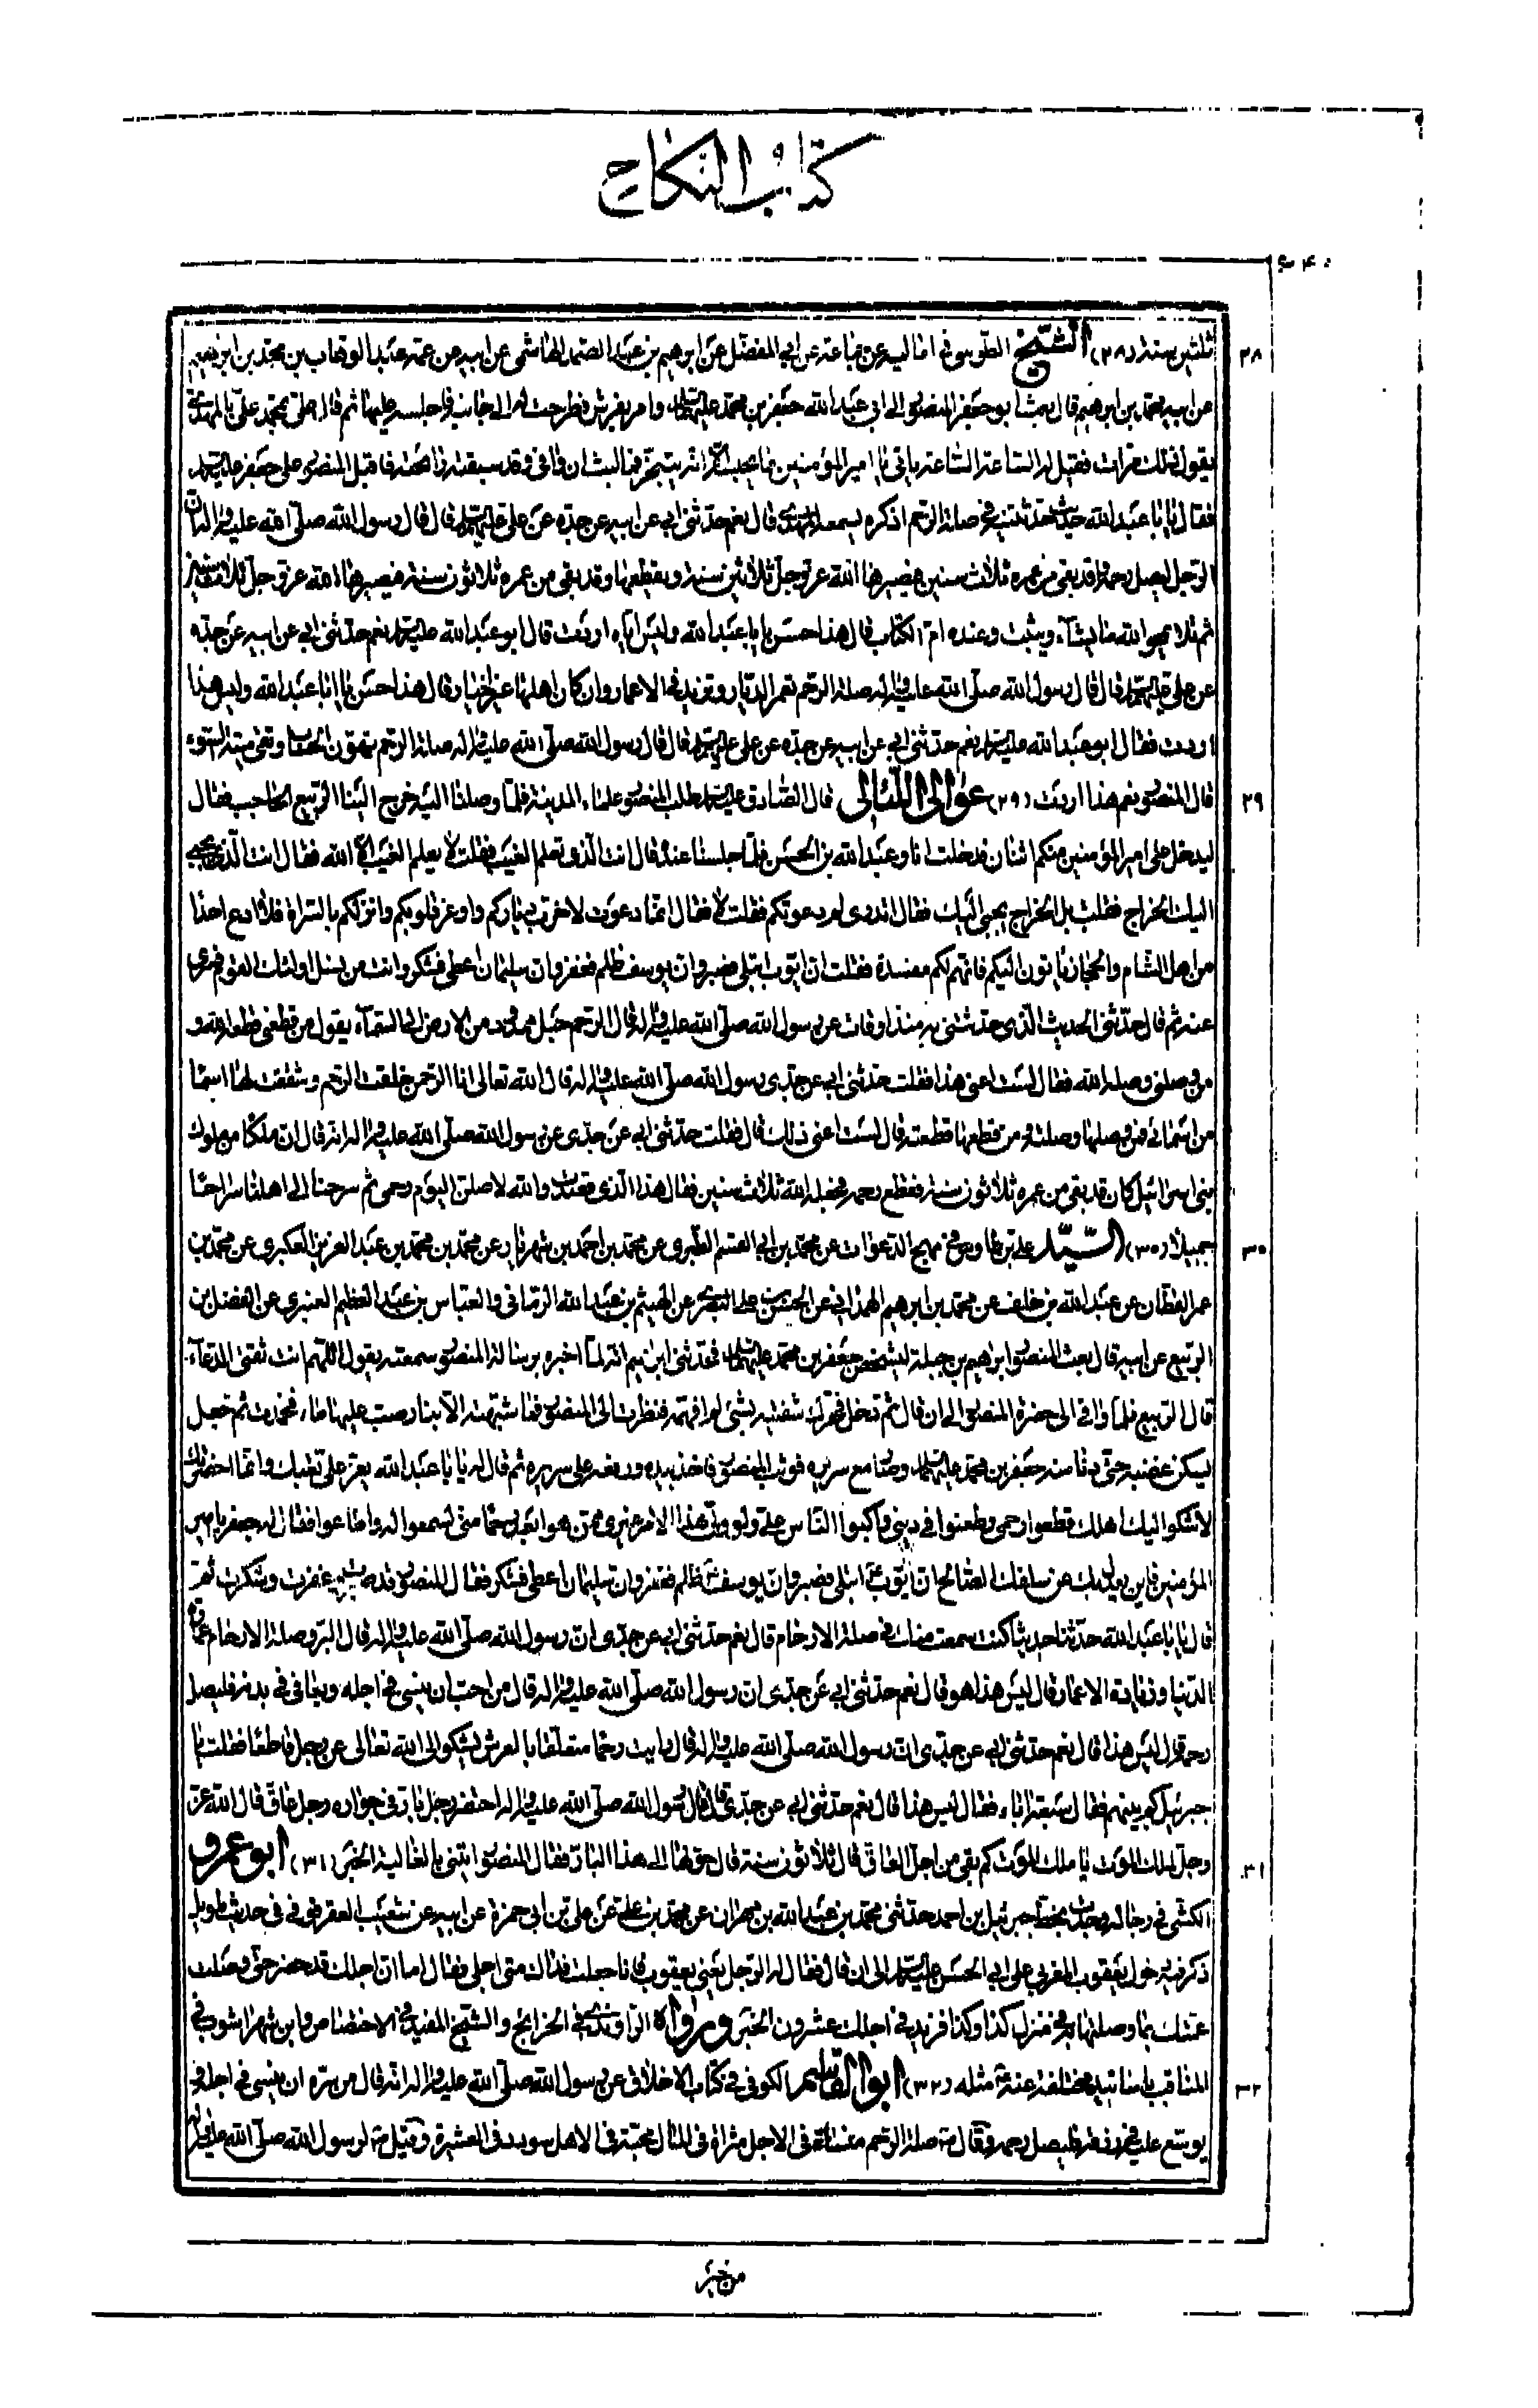 كتاب النكاح
٦٤٠
ثلثين سنة (٢٨) الشيخ الطوسي في اماليه عن جماعة عن ابي المفضل عن ابرهيم بن عبد الصمد الهاشمي عن ابيه عن عمه عبد الوهاب بن محمد بن ابرهيم
٢٨
عن ابيه محمد بن ابرهيم قال بعث ابو جعفر المنصور الى ابي عبد الله جعفر بن محمد عليهما السلام وامر بفرش فطرحت له الى جانبه فاجلسه عليها ثم قال علي بمحمد علي بالمهدي
يقول ذلك مرات فقيل له الساعة الساعة ياتي يا امير المؤمنين ما يحبسه الا انه يتبخر فما لبث ان وافى وقد سبقته رائحته فاقبل المنصور على جعفر عليه السلام
فقال يا ابا عبد الله حديث حدثتنيه في صلة الرحم اذكره يسمعه المهدي قال نعم حدثني ابي عن ابيه عن جده عن علي عليهم السلام قال قال رسول الله صلى الله عليه واله ان
الرجل ليصل رحمه وقد بقي من عمره ثلاث سنين فيصيرها الله عز وجل ثلاثين سنة ويقطعها وقد بقي من عمره ثلاثون سنة فيصيرها الله عز وجل ثلاث سنين
ثم تلا يمحو الله ما يشآء ويثبت وعنده ام الكتاب قال هذا حسن يا ابا عبد الله وليس اياه اردت قال ابو عبد الله عليه السلام نعم حدثني ابي عن ابيه عن جده
عن علي عليهم السلام قال قال رسول الله صلى الله عليه واله صلة الرحم تعمر الديار وتزيد في الاعمار وان كان اهلها غير اخيار قال هذا حسن يا ابا عبد الله وليس هذا
اردت فقال ابو عبد الله عليه السلام نعم حدثني ابي عن ابيه عن جده عن علي عليهم السلام قال قال رسول الله صلى الله عليه واله صلة الرحم تهون الحساب وتقي ميتة السوء
قال المنصور نعم هذا اردت (٢٩) عوالي اللئالي قال الصادق عليه السلام طلب المنصور علماء المدينة فلما وصلنا اليه خرج الينا الربيع الحاجب فقال
٢٩
ليدخل على امير المؤمنين منكم اثنان فدخلت انا وعبد الله بن الحسن فلما جلسنا عنده قال انت الذي تعلم الغيب فقلت لا يعلم الغيب الا الله فقال انت الذي يجبى
اليك الخراج فقلت بل الخراج يجبى اليك فقال اتدري لم دعوتكم فقلت لا فقال انما دعوتكم لاخرب دياركم واوغر قلوبكم وانزلكم بالسراة فلا ادع احدا
من اهل الشام والحجاز ياتون اليكم فانهم لكم مفسدة فقلت ان ايوب ابتلي فصبر وان يوسف ظلم فغفر وان سليمان اعطي فشكر وانت من نسل اولئك القوم فسري
عنه ثم قال حدثني الحديث الذي حدثتني به منذ اوقات عن رسول الله صلى الله عليه واله قال الرحم حبل ممدود من الارض الى السمآء يقول من قطعني قطعه الله و
من وصلني وصله الله فقال لست اعني هذا فقلت حدثني ابي عن جدي رسول الله صلى الله عليه واله قال الله تعالى انا الرحمن خلقت الرحم وشققت لها اسما
من اسمائي فمن وصلها وصلته ومن قطعها قطعته قال لست اعني ذلك قال فقلت حدثني ابي عن جدي عن رسول الله صلى الله عليه واله انه قال ان ملكا من ملوك
بني اسرائيل كان قد بقي من عمره ثلاثون سنة فقطع رحمه فجعله الله ثلاث سنين فقال هذا الذي قصدت والله لاصلن اليوم رحمي ثم سرحنا الى اهلنا سراحا
جميلا (٣٠) السيد علي بن طاوس في مهج الدعوات عن محمد بن ابي القسم الطبري عن محمد بن احمد بن شهريار عن محمد بن محمد بن عبد العزيز العكبري عن محمد بن
٣٠
عمر القطان عن عبد الله بن خلف عن محمد بن ابرهيم الهمداني عن الحسن بن علي البصري عن الهيثم بن عبد الله الرماني والعباس بن عبد العظيم العنبري عن الفضل بن
الربيع عن ابيه قال بعث المنصور ابرهيم بن جبلة ليشخص جعفر بن محمد عليهما السلام فحدثني ابرهيم انه لما اخبره برسالة المنصور سمعته يقول اللهم انت ثقتي الدعآء
قال الربيع فلما وافى الى حضرة المنصور الى ان قال ثم دخل فحرك شفتيه بشئ لم افهمه فنظرت الى المنصور فما شبهته الا بنار صب عليها ماء فخمدت ثم جعل
يسكن غضبه حتى دنا منه جعفر بن محمد عليهما السلام وصار مع سريره فوثب المنصور فاخذ بيده ورفعه على سريره ثم قال له يا ابا عبد الله يعز علي تعبك وانما احضرتك
لاشكو اليك اهلك قطعوا رحمي وطعنوا في ديني والبوا الناس علي ولو ولي هذا الامر غيري ممن هو ابعد رحما مني لسمعوا له واطاعوا فقال له جعفر يا امير
المؤمنين فاين يعدل بك عن سلفك الصالح ان ايوب ابتلي فصبر وان يوسف ظلم فغفر وان سليمان اعطي فشكر فقال المنصور قد صبرت وغفرت وشكرت ثم
قال يا ابا عبد الله حدثنا حديثا كنت سمعته منك في صلة الارحام قال نعم حدثني ابي عن جدي ان رسول الله صلى الله عليه واله قال البر وصلة الارحام عمارة
الدنيا وزيادة الاعمار قال ليس هذا هو قال نعم حدثني ابي عن جدي ان رسول الله صلى الله عليه واله قال من احب ان ينسى في اجله ويعافى في بدنه فليصل
رحمه قال ليس هذا قال نعم حدثني ابي عن جدي ان رسول الله صلى الله عليه واله قال رايت رحما متعلقا بالعرش يشكو الى الله تعالى عز وجل قاطعا فقلت يا
جبرئيل كم بينهم فقال سبعة اباء فقال ليس هذا قال نعم حدثني ابي عن جدي قال قال رسول الله صلى الله عليه واله احتضر رجل بار في جواره رجل عاق قال الله عز
وجل لملك الموت يا ملك الموت كم بقي من اجل العاق قال ثلاثون سنة قال حولها الى هذا البار فقال المنصور ايتني بالغالية الخبر (٣١) ابو عمرو
٣١
الكشي في رجاله وجدت بخط جبرئيل بن احمد حدثني محمد بن عبد الله بن مهران عن محمد بن علي عن علي بن ابي حمزة عن ابيه عن شعيب العقرقوفي في حديث طويل
ذكر فيه دخول يعقوب المغربي على ابي الحسن عليه السلام الى ان قال فقال له الرجل يعني يعقوب فانا جعلت فداك متى اجلي فقال اما ان اجلك قد حضر حتى وصلت
عمتك بما وصلتها به في منزل كذا وكذا فزيد في اجلك عشرون الخبر ورواه الراوندي في الخرائج والشيخ المفيد في الاختصاص وابن شهراشوب في
المناقب باسانيد مختلفة عنه مثله (٣٢) ابو القاسم الكوفي في كتاب الاخلاق عن رسول الله صلى الله عليه واله انه قال من سره ان ينسى في اجله و
٣٢
يوسع عليه في رزقه فليصل رحمه وقال صلة الرحم منساة في الاجل مثراة في المال محبة في الاهل سودد في العشيرة وقيل لرسول الله صلى الله عليه واله
من خير